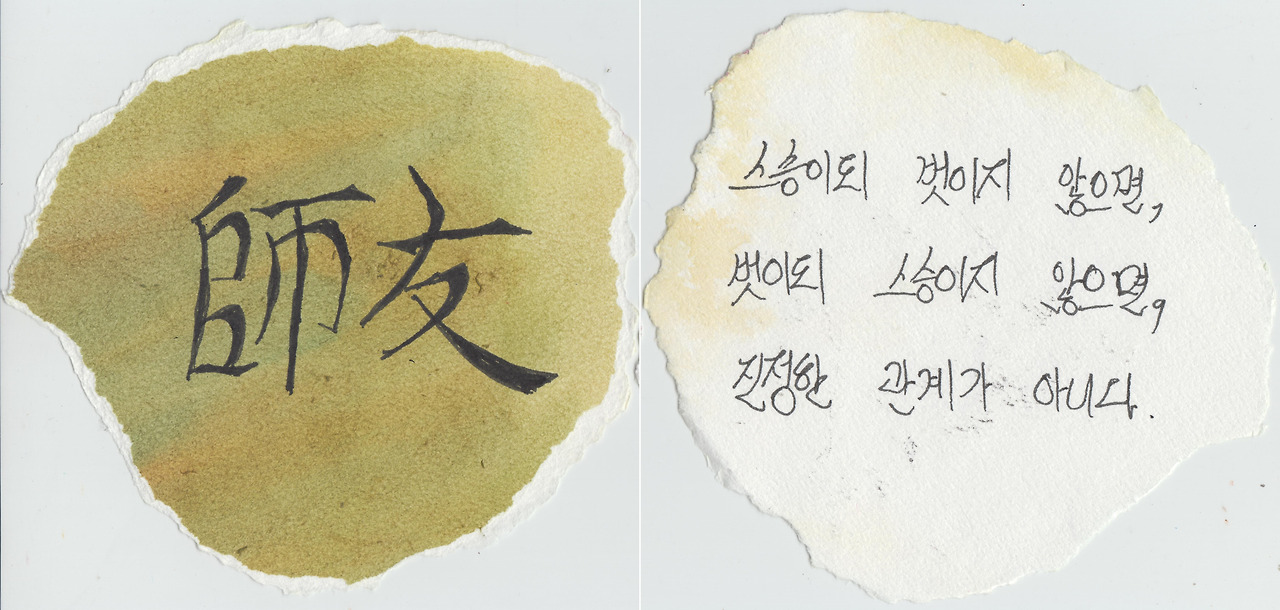 師友
스승이되 벗이지 않으면,
벗이되 스승이지 않으면,
진정한 관계가 아니다.